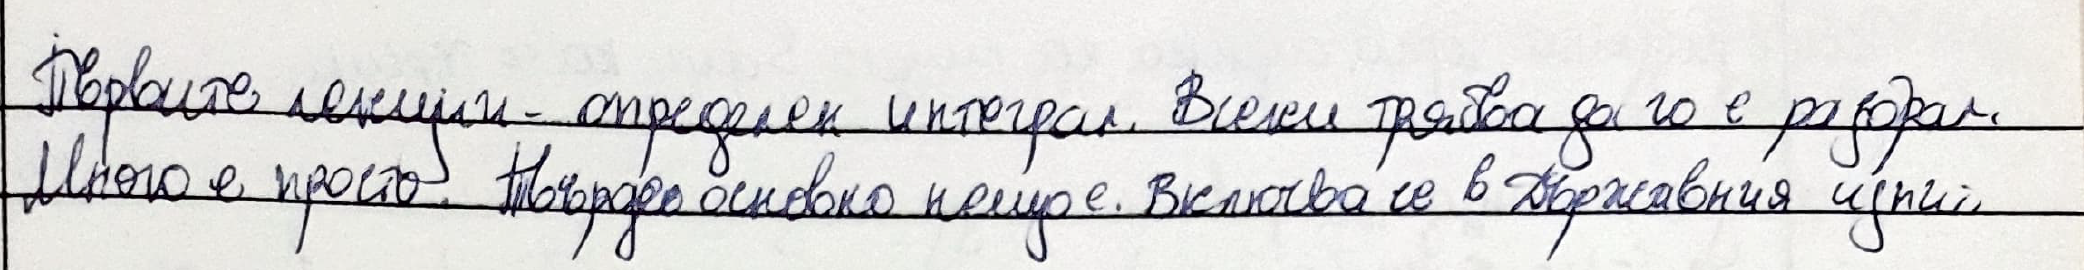 Първите лекции - определен интеграл. Всеки трябва да го е разбрал.
Много е просто. основно нещо е. Включва се в Държавния изпит.